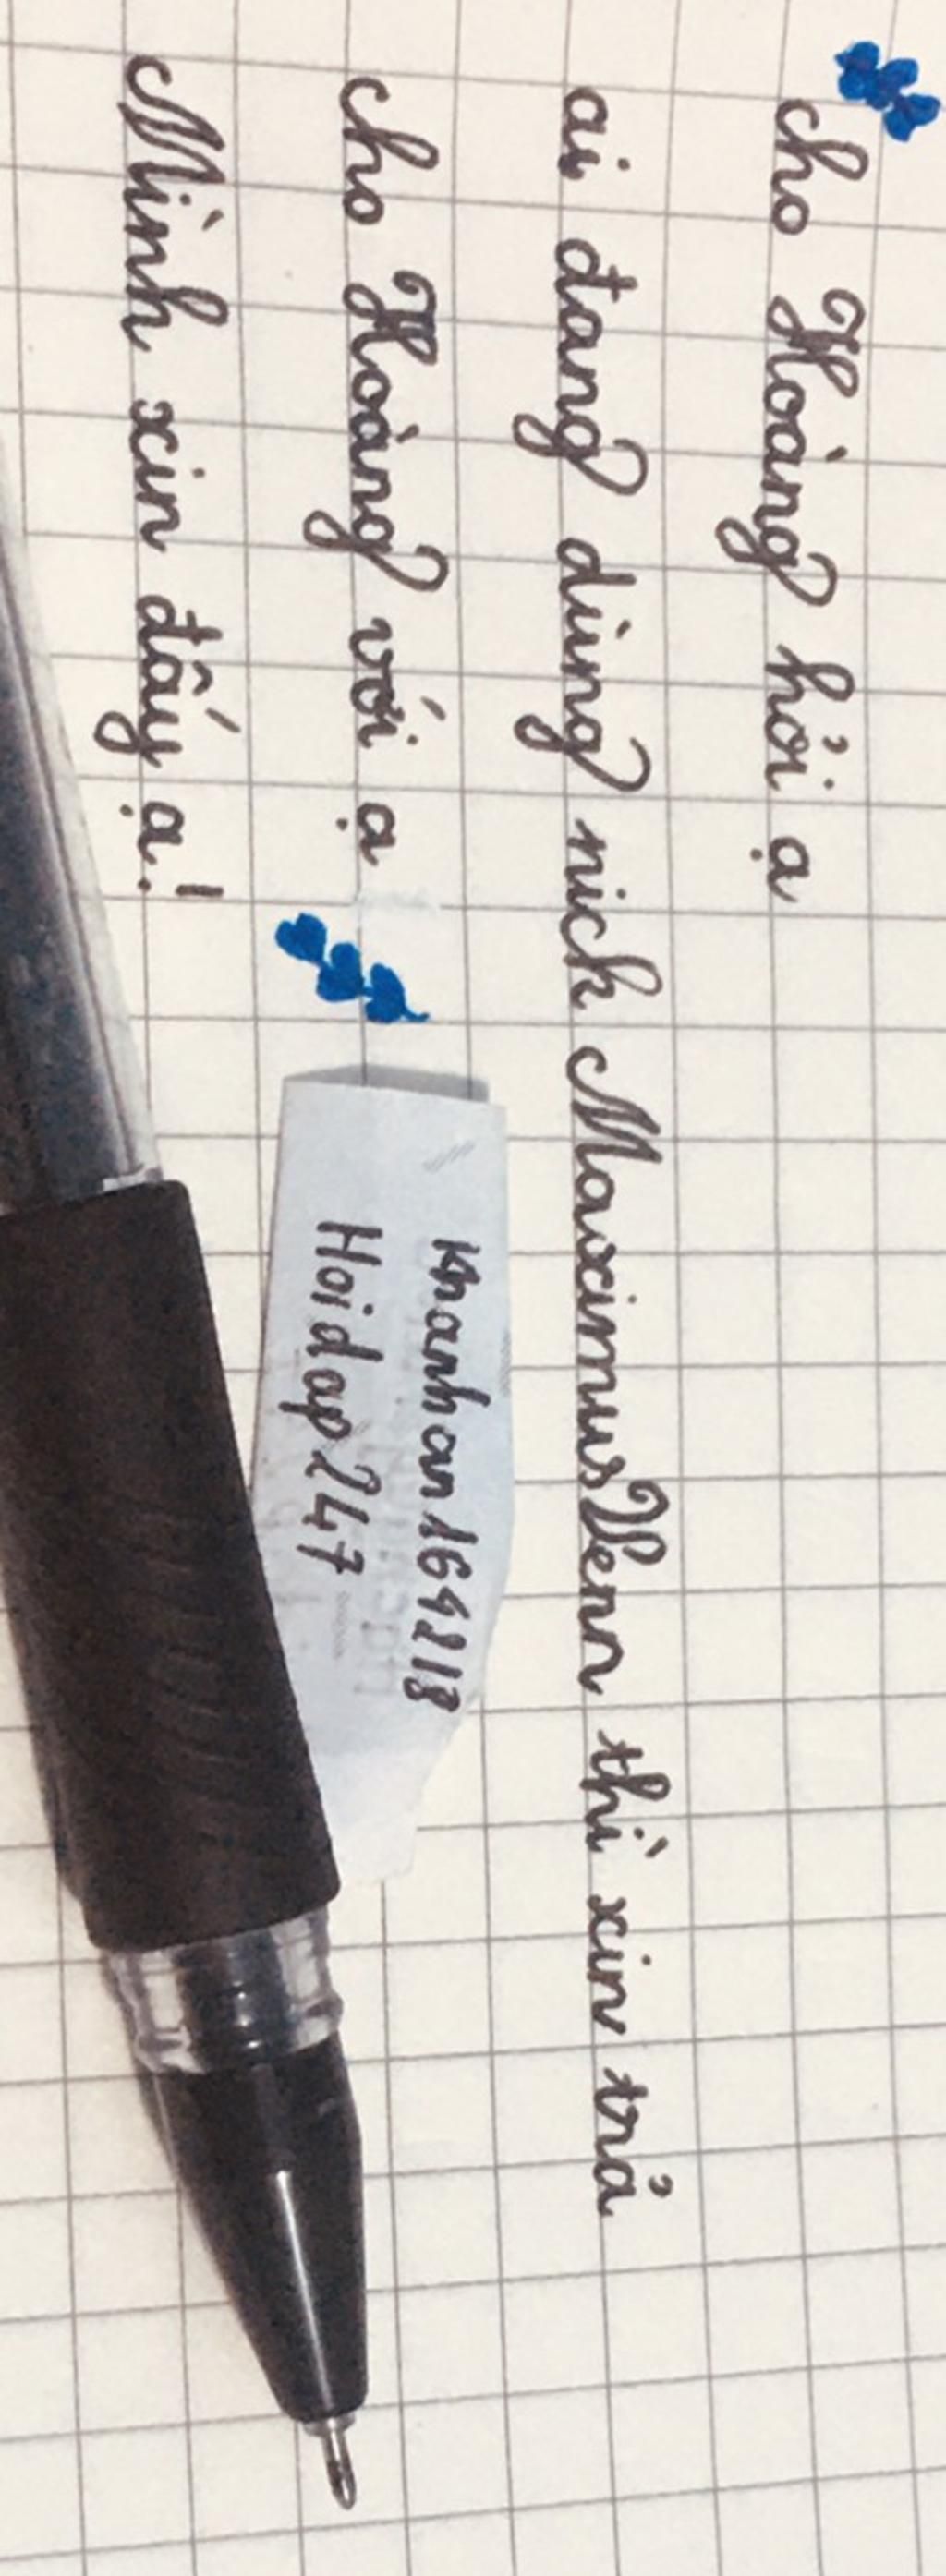 cho Hoàng hỏi ạ
ai đang dùng nick MaximusVenn thì xin trả
cho Hoàng với ạ
Mình xin đấy ạ!
Khanhan164218
Hoidap247